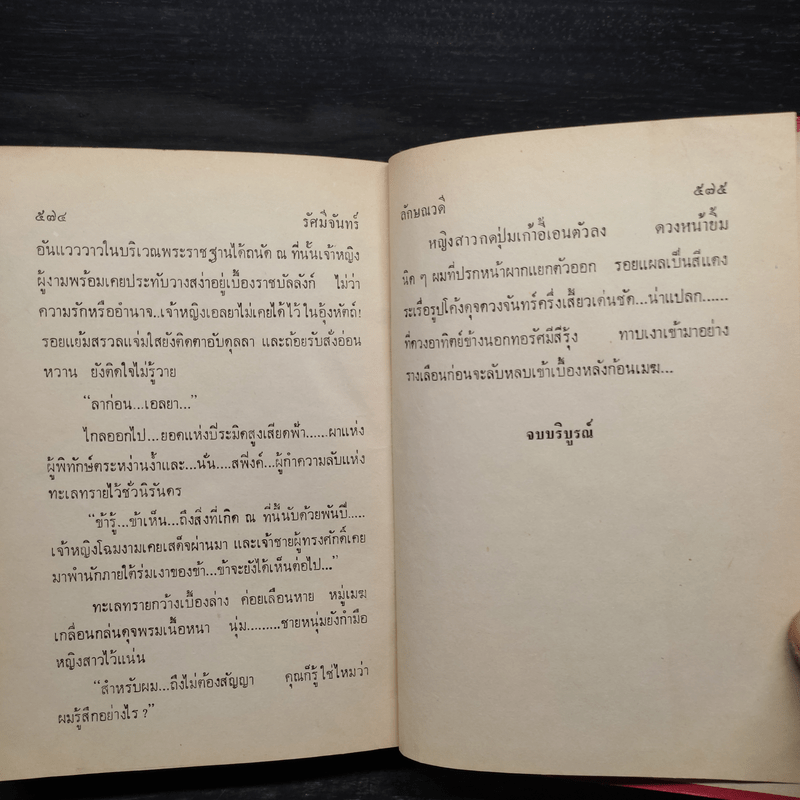 ๕๗๔
รัศมีจันทร์
อันแวววาวในบริเวณพระราชฐานได้ถนัด ณ ที่นั้นเจ้าหญิง
ผู้งามพร้อมเคยประทับวางสง่าอยู่เบื้องราชบัลลังก์ ไม่ว่า
ความรักหรืออำนาจ..เจ้าหญิงเอลยาไม่เคยได้ไว้ในอุ้งหัตถ์!
รอยแย้มสรวลแจ่มใสยังติดตาอับดุลลา และถ้อยรับสั่งอ่อน
หวาน ยังติดใจไม่รู้วาย
“ลาก่อน...เอลยา...”
ไกลออกไป...ยอดแห่งปิระมิดสูงเสียดฟ้า......ผาแห่ง
ผู้พิทักษ์ตระหง่านง้ำและ...นั่น....สฟิงค์...ผู้กำความลับแห่ง
ทะเลทรายไว้ชั่วนิรันดร
“ข้ารู้...ข้าเห็น...ถึงสิ่งที่เกิด ณ ที่นี้นับด้วยพันปี.....
เจ้าหญิงโฉมงามเคยเสด็จผ่านมา และเจ้าชายผู้ทรงศักดิ์เคย
มาพำนักภายใต้ร่มเงาของข้า...ข้าจะยังได้เห็นต่อไป...”
ทะเลทรายกว้างเบื้องล่าง ค่อยเลือนหาย หมู่เมฆ
เกลื่อนกล่นดุจพรมเนื้อหนา นุ่ม.........ชายหนุ่มยังกำมือ
หญิงสาวไว้แน่น
“สำหรับผม...ถึงไม่ต้องสัญญา คุณก็รู้ใช่ไหมว่า
ผมรู้สึกอย่างไร ?”
๕๗๕
ลักษณวดี
หญิงสาวกดปุ่มเก้าอี้เอนตัวลง ดวงหน้ายิ้ม
นิด ๆ ผมที่ปรกหน้าผากแยกตัวออก รอยแผลเป็นสีแดง
ระเรื่อรูปโค้งดุจดวงจันทร์ครึ่งเสี้ยวเด่นชัด...น่าแปลก......
ที่ดวงอาทิตย์ข้างนอกทอรัศมีสีรุ้ง ทาบเงาเข้ามาอย่าง
รางเลือนก่อนจะลับหลบเข้าเบื้องหลังก้อนเมฆ...
จบบริบูรณ์